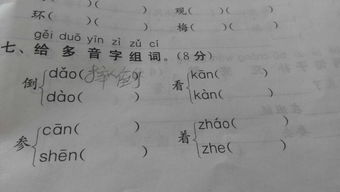 环(          )(          )    观(          )(          )
(          )(          )    梅(          )(          )
gěi duō yīn zì zǔ cí
七、给多音字组词。(8分)
倒 dǎo(摔倒)    看 kān(          )
dào(          )    kàn(          )
参 cān(          )    着 zháo(          )
shēn(          )    zhe(          )